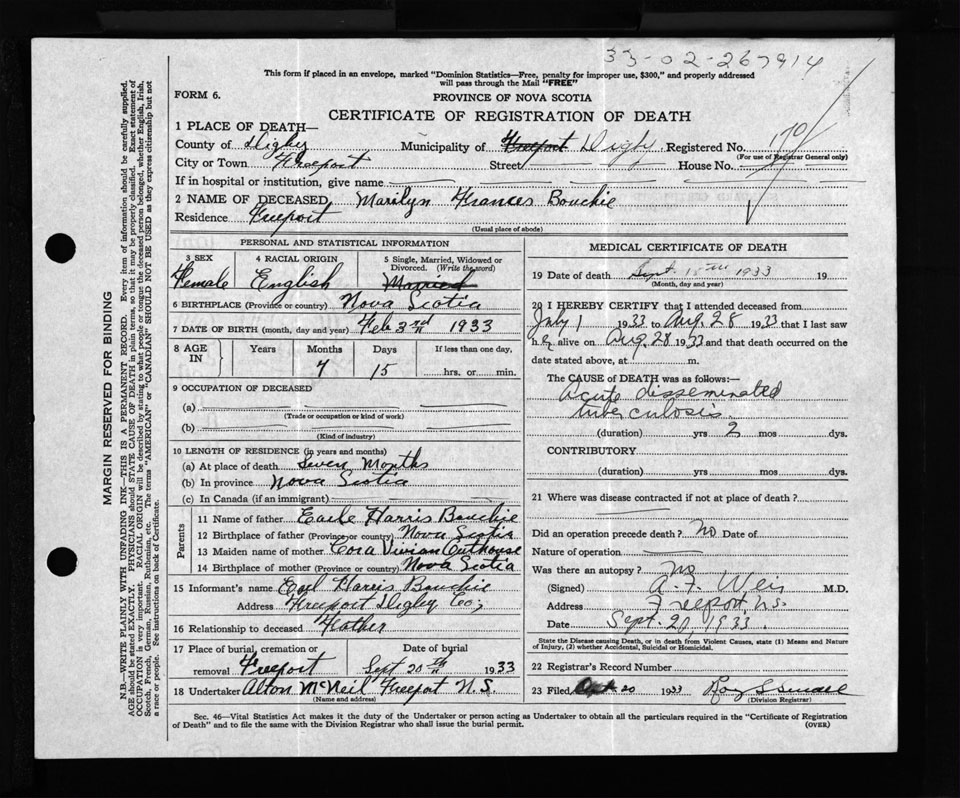 33-02-267914
This form if placed in an envelope, marked "Dominion Statistics—Free, penalty for improper use, $300," and properly addressed
will pass through the Mail "FREE"
FORM 6.
PROVINCE OF NOVA SCOTIA
CERTIFICATE OF REGISTRATION OF DEATH
1 PLACE OF DEATH—
County of Digby Municipality of Freeport Digby Registered No. 170
(For use of Registrar General only)
City or Town Freeport Street House No.
If in hospital or institution, give name
2 NAME OF DECEASED Marilyn Frances Bouchie
Residence Freeport
(Usual place of abode)
PERSONAL AND STATISTICAL INFORMATION
3 SEX 4 RACIAL ORIGIN 5 Single, Married, Widowed or
Divorced. (Write the word)
Female English Married
6 BIRTHPLACE (Province or country) Nova Scotia
7 DATE OF BIRTH (month, day and year) Feb 3rd 1933
8 AGE IN Years Months Days If less than one day,
7 15 hrs. or min.
9 OCCUPATION OF DECEASED
(a)
(Trade or occupation or kind of work)
(b)
(Kind of industry)
10 LENGTH OF RESIDENCE (in years and months)
(a) At place of death Seven Months
(b) In province Nova Scotia
(c) In Canada (if an immigrant)
Parents
11 Name of father Earle Harris Bouchie
12 Birthplace of father (Province or country) Nova Scotia
13 Maiden name of mother Cora Vivian Outhouse
14 Birthplace of mother (Province or country) Nova Scotia
15 Informant's name Earl Harris Bouchie
Address Freeport Digby Co;
16 Relationship to deceased Father
17 Place of burial, cremation or Date of burial
removal Freeport Sept 20th 1933
18 Undertaker Alton McNeil Freeport N.S.
(Name and address)
MEDICAL CERTIFICATE OF DEATH
19 Date of death Sept. 18th 1933 19
(Month, day and year)
20 I HEREBY CERTIFY that I attended deceased from
July 1 1933 to Aug. 28 1933 that I last saw
h er alive on Aug. 28 1933 and that death occurred on the
date stated above, at m.
The CAUSE OF DEATH was as follows:—
Acute disseminated
tuberculosis.
(duration) yrs 2 mos dys.
CONTRIBUTORY
(duration) yrs mos dys.
21 Where was disease contracted if not at place of death?
Did an operation precede death? No Date of
Nature of operation
Was there an autopsy? No
(Signed) A. F. Weir M.D.
Address Freeport, N.S.
Date Sept. 20, 1933.
State the Disease causing Death, or in death from Violent Causes, state (1) Means and Nature
of Injury, (2) whether Accidental, Suicidal or Homicidal.
22 Registrar's Record Number
23 Filed 20 1933
(Division Registrar)
Sec. 46—Vital Statistics Act makes it the duty of the Undertaker or person acting as Undertaker to obtain all the particulars required in the "Certificate of Registration
of Death" and to file the same with the Division Registrar who shall issue the burial permit.
(OVER)
MARGIN RESERVED FOR BINDING
N.B.—WRITE PLAINLY WITH UNFADING INK—THIS IS A PERMANENT RECORD. Every item of information should be carefully supplied.
AGE should be stated EXACTLY. PHYSICIANS should STATE CAUSE OF DEATH in plain terms, so that it may be properly classified. Exact statement of
OCCUPATION is very important. RACIAL ORIGIN will be described by stating to what people or tongue the deceased person belonged, whether English, Irish,
Scotch, French, German, Russian, Ruthenian, etc. The terms "AMERICAN" or "CANADIAN" SHOULD NOT BE USED as they express citizenship but not
a race or people. See instructions on back of Certificate.